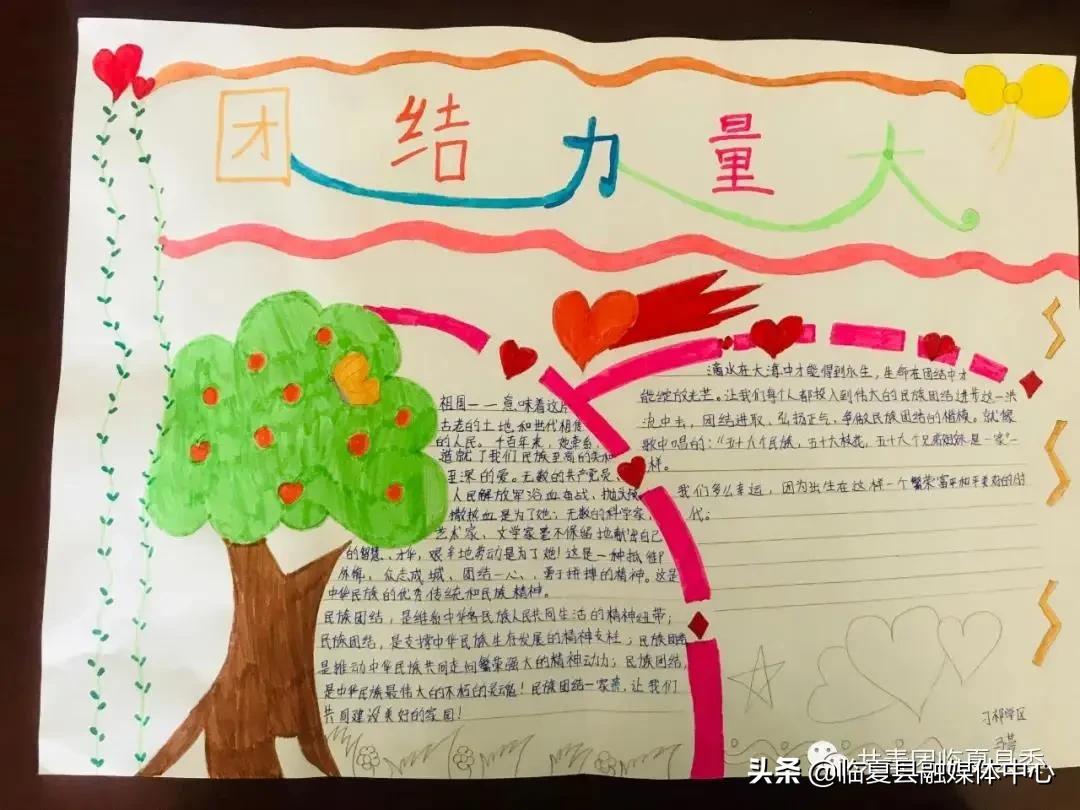 团结力量大
祖国——意味着这片
古老的土地和世代相传
的人民。千百年来，她牵台
造就了我们民族至高的美和
至深的爱。无数的共产党员、
人民解放军浴血奋战、抛头颅
撒热血是为了她；无数的科学家、
艺术家、文学家毫不保留地献出自己
的智慧、才华，艰辛地劳动是为了她！这是一种抵御
外侮，众志成城、团结一心、勇于拼搏的精神。这是
中华民族的优秀传统和民族精神。
民族团结，是维系中华各民族人民共同生活的精神纽带；
民族团结，是支撑中华民族生存发展的精神支柱；民族团结
是推动中华民族共同走向繁荣强大的精神动力；民族团结，
是中华民族最伟大的不朽的灵魂！民族团结一家亲，让我们
共同建设美好的家园！
滴水在大海中才能得到永生，生命在团结中才
能绽放光芒。让我们每个人都投入到伟大的民族团结进步这一洪
浪中去，团结进取，弘扬正气，争做民族团结的楷模。就像
歌中唱的：“五十六个民族，五十六枝花，五十六个兄弟姐妹是一家”一
样。
我们多么幸运，因为出生在这样一个繁荣富平和平美好的时
代；
刁祁学区
共青团临夏县委
头条 @临夏县融媒体中心